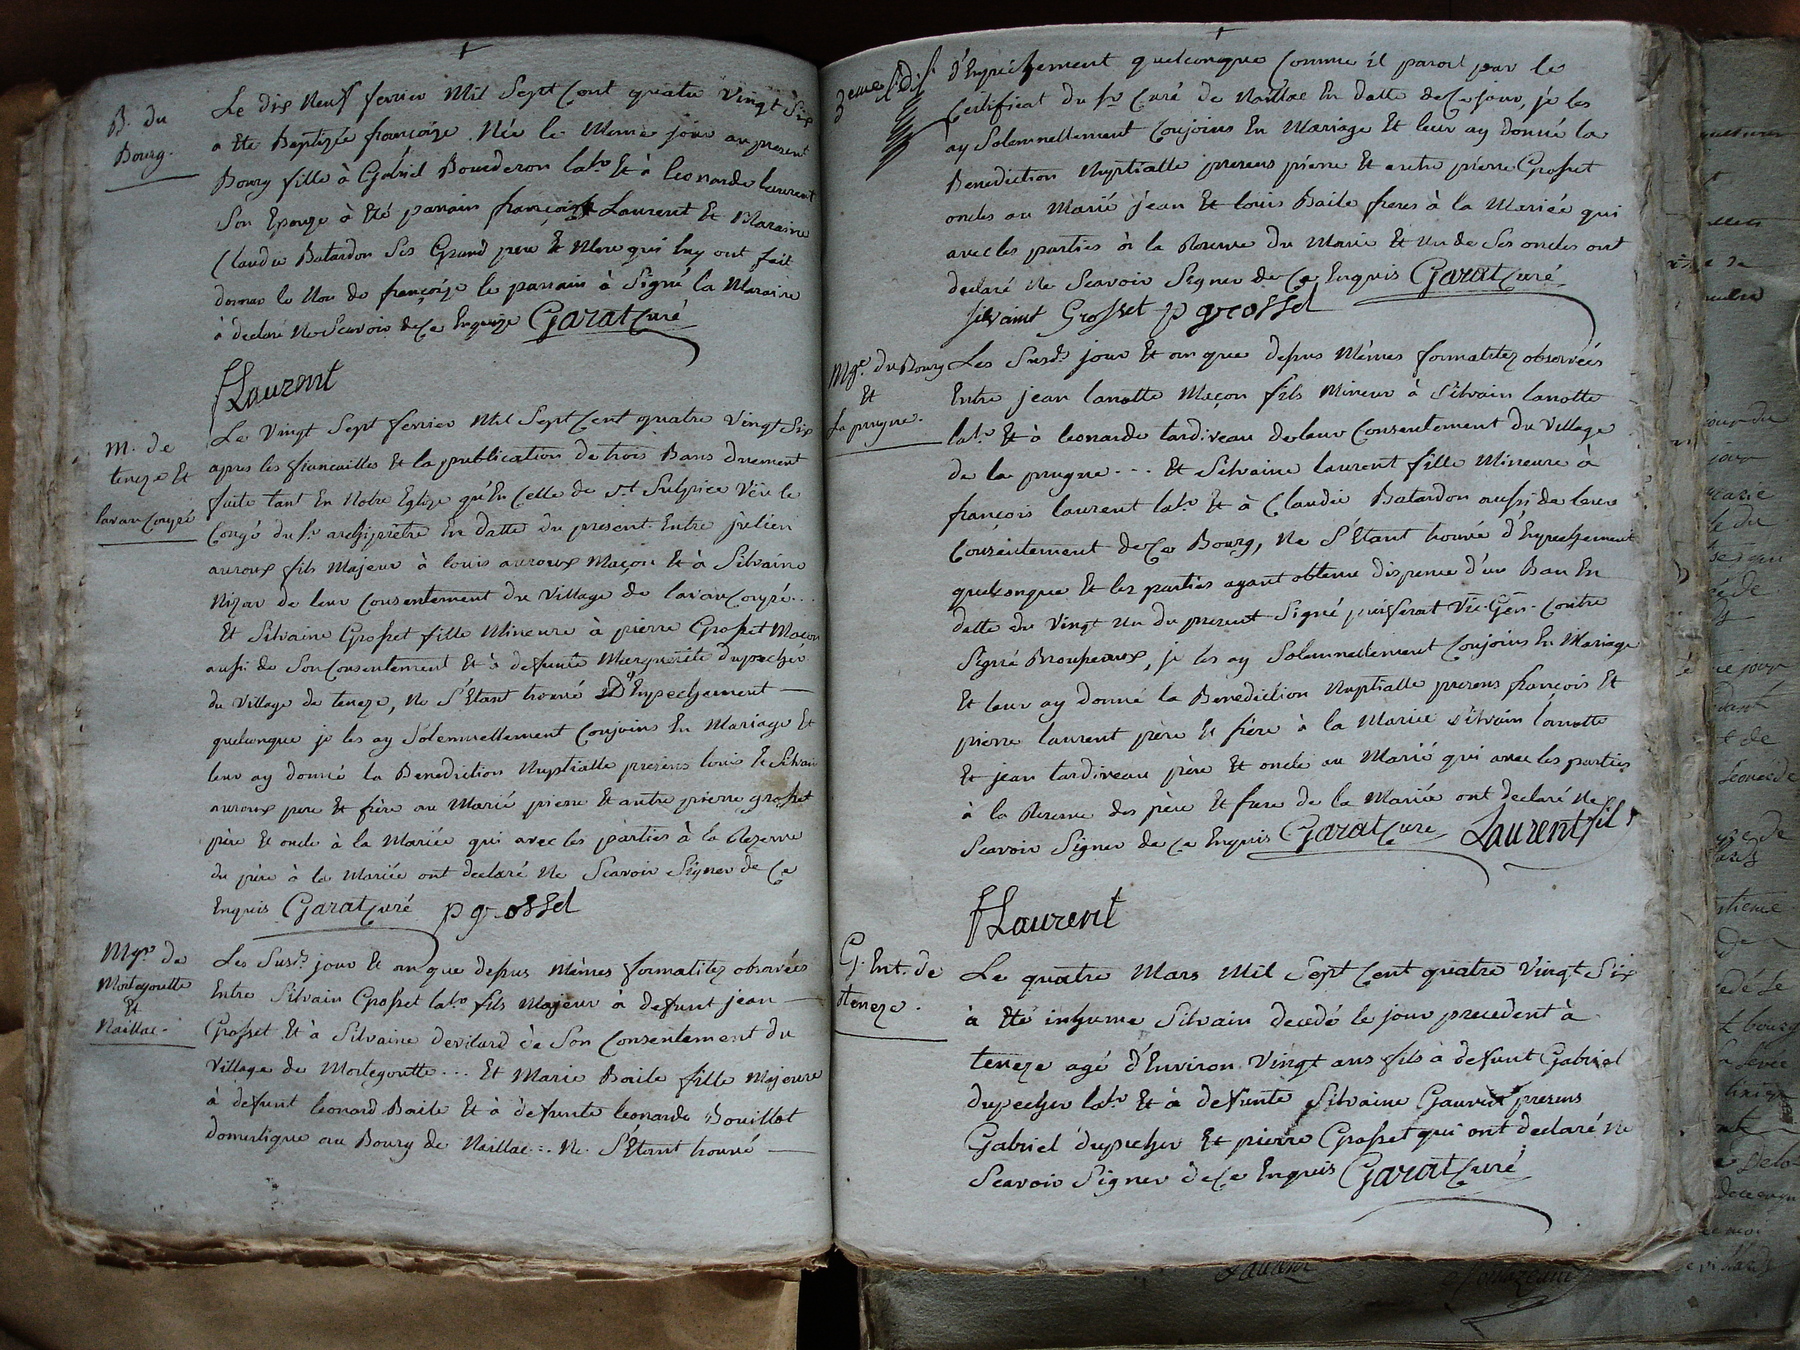 B. du
Bourg.
Le dix Neuf fevrier Mil Sept Cent quatre Vingt Six
a ete Baptizée françoize Née le Meme jour au present
Bourg fille à Gabriel Bourderon labr Et à leonarde laurent
Son Epouze à Eté parain françois Laurent Et Maraine
Claudie Batardon Ses Grand pere Et Mere qui luy ont fait
donner le Nom de françoize le parrain à Signé la Maraine
à declaré Ne Scavoir de Ce Enquize Garat Curé
fLaurent
M. de
teneze Et
lavaucoupé
Le Vingt Sept fevrier Mil Sept Cent quatre Vingt Six
apres les fiancailles Et la publication de trois Bans duement
faite tant En Notre Eglize qu'En Celle de St Sulpice Veu le
Congé du Sr archiprêtre En datte du present Entre julien
auroux fils Majeur à louis auroux Maçon Et à Silvaine
Nizou de leur Consentement du Village de lavaucoupé...
Et Silvaine Grosset fille Mineure à pierre Grosset Maçon
aussi de Son Consentement Et à defunte Marguerite dupecher
du Village de teneze, Ne S'Etant trouvé d'Empechement —
quelconque je les ay Solemnellement Conjoins En Mariage Et
leur ay donné la Benediction Nuptialle presens louis Et Silvain
auroux pere Et frère au Marié pierre Et autre pierre grosset
père Et oncle à la Mariée qui avec les parties à la Rezerve
du père à la Mariée ont declaré Ne Scavoir Signer de Ce
Enquis Garat Curé p grosset
Mge de
Mortegoutte
Et
Naillac.
Les Susds jour Et an que dessus Mêmes formalitez observées
Entre Silvain Grosset labr fils Majeur à defunt jean —
Grosset Et à Silvaine devilard de Son Consentement du
Village de Mortegoutte... Et Marie Baile fille Majeure
à defunt leonard Baile Et à defunte leonarde Bouillot
domestique au Bourg de Naillac.. Ne S'Etant trouvé —
3eme
d'Empechement quelconque Comme il paroit par le
Certificat du Sr Curé de Naillac En datte de Ce jour, je les
ay Solemnellement Conjoins En Mariage Et leur ay donné la
Benediction Nuptialle presens pierre Et autre pierre Grosset
oncles au Marié jean Et louis Baile freres à la Mariée qui
avec les parties à la Rezerve du Marié Et un de Ses oncles ont
declaré Ne Scavoir Signer de Ce Enquis Garat Curé
silvaint Grosset p grossel
Mge du Bourg
Et
La prugne.
Les Susds jour Et an que dessus Mêmes formalitez observées
Entre jean lanotte Maçon fils Mineur à Silvain lanotte
labr Et à leonarde tardiveau de leur Consentement du Village
de la prugne... Et Silvaine laurent fille Mineure à
françois laurent labr Et à Claudie Batardon aussi de leur
Consentement de Ce Bourg, Ne S'Etant trouvé d'Empechement
quelconque Et les parties ayant obtenu dispense d'un Ban En
datte du Vingt un du present Signé puiferat Vic Gén. Contre
Signé Broupeaux, je les ay Solemnellement Conjoins En Mariage
Et leur ay donné la Benediction Nuptialle presens françois Et
pierre laurent père Et frère à la Mariée Silvain lanotte
Et jean tardiveau père Et oncle au Marié qui avec les parties
à la Rezerve des père Et frere de la Mariée ont declaré Ne
Scavoir Signer de Ce Enquis Garat Curé Laurent fils
fLaurent
G. Ent. de
teneze.
Le quatre Mars Mil Sept Cent quatre Vingt Six
à Eté inhume Silvain decedé le jour precedent à
teneze agé d'Environ Vingt ans fils à defunt Gabriel
dupecher labr Et à defunte Silvaine Gauvin presens
Gabriel dupecher Et pierre Grosset qui ont declaré Ne
Scavoir Signer de Ce Enquis Garat Curé